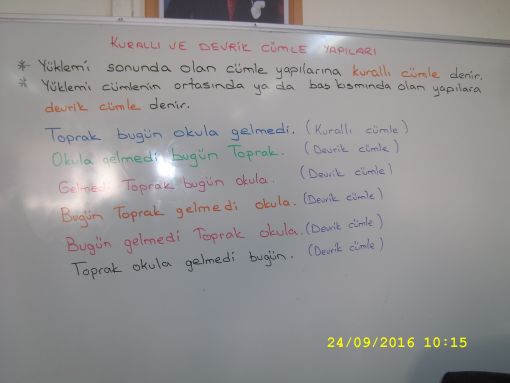 KURALLI VE DEVRİK CÜMLE YAPILARI
* Yüklemi sonunda olan cümle yapılarına kurallı cümle denir.
* Yüklemi cümlenin ortasında ya da baş kısmında olan yapılara
devrik cümle denir.
Toprak bugün okula gelmedi. (Kurallı cümle)
Okula gelmedi bugün Toprak. (Devrik cümle)
Gelmedi Toprak bugün okula. (Devrik cümle)
Bugün Toprak gelmedi okula. (Devrik cümle)
Bugün gelmedi Toprak okula. (Devrik cümle)
Toprak okula gelmedi bugün. (Devrik cümle)
24/09/2016 10:15